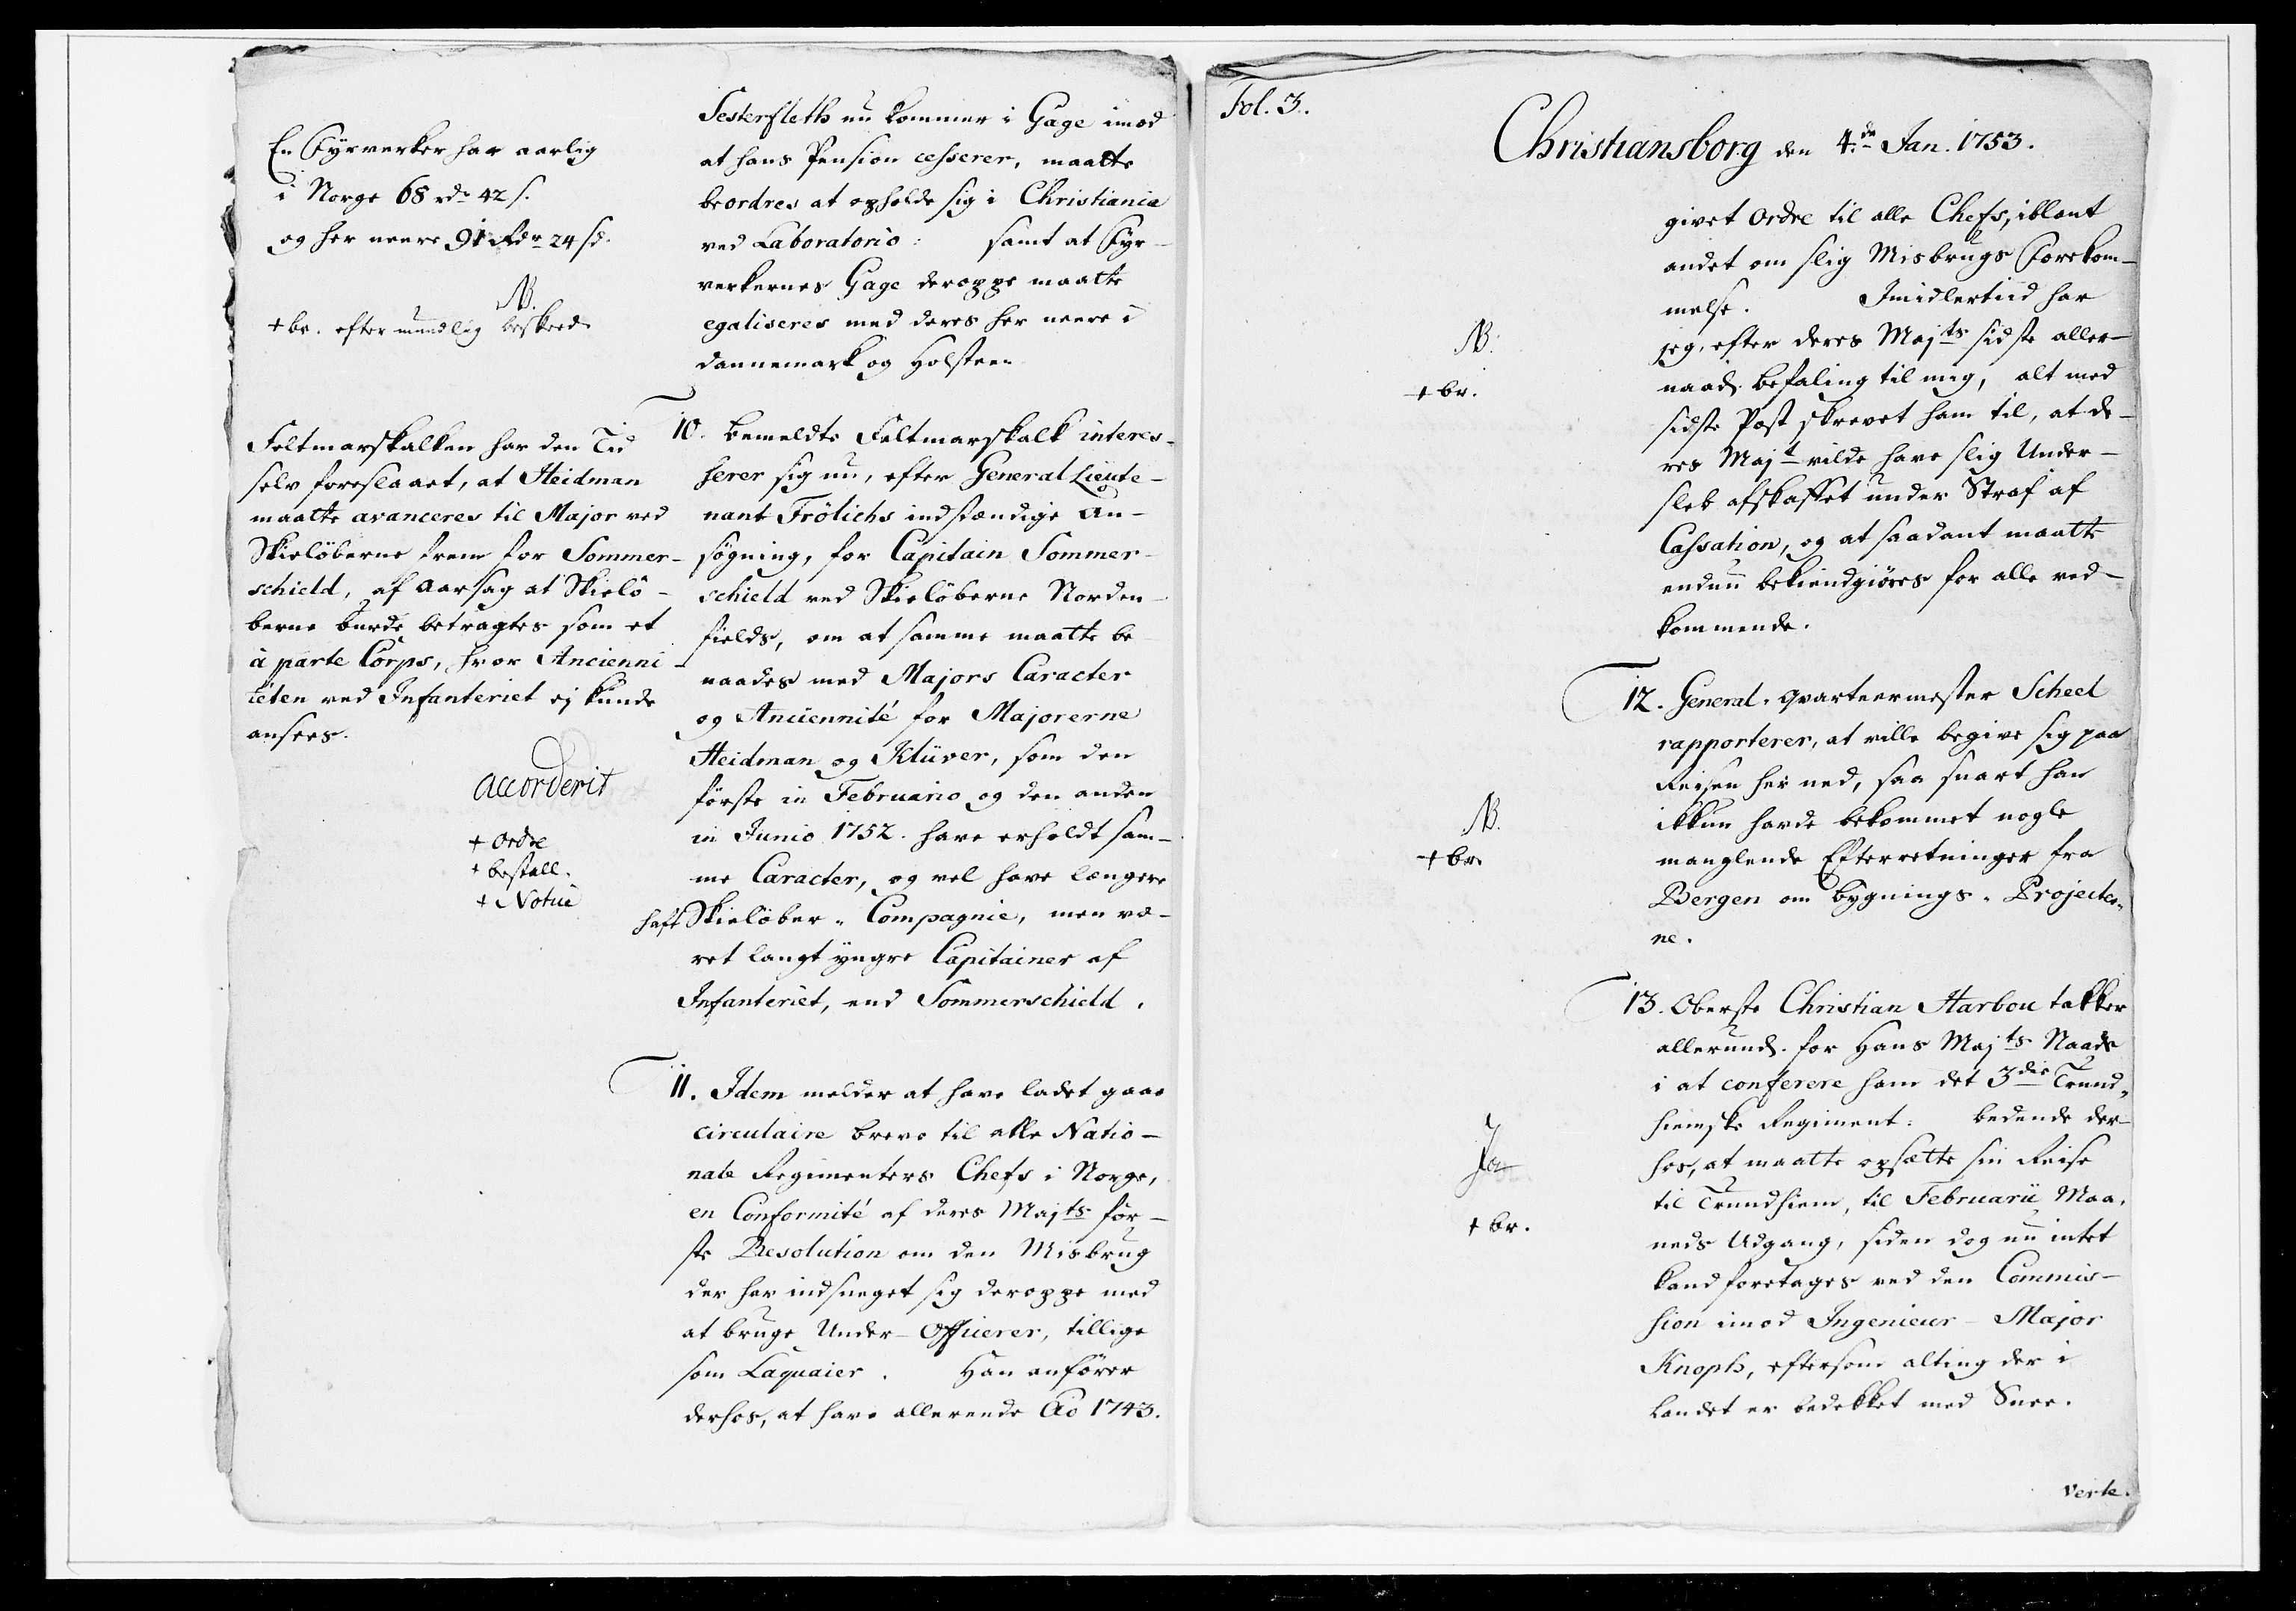 En Fyrverker har aarlig
i Norge 68 rdr 42 s.
og her neere 91 Rdr 24 sd.
NB.
+ br. efter mundlig beskeed
Feltmarskalken har den Tid
selv foreslaaet, at Heidman
maatte avanceres til Major ved
Skielöberne frem for Sommer-
schield, af Aarsag at Skielö-
berne burde betragtes som et
à parte Corps, hvor Ancienni-
teten ved Infanteriet ej kunde
ansees.
Accorderit
+ Ordre
+ bestall.
+ Notice
Sesterfleth nu kommer i Gage imod
at hans Pension cesserer, maatte
beordres at opholde sig i Christiania
ved Laboratorio: samt at Fyr-
verkernes Gage deroppe maatte
egaliseres med deres her neere i
Dannemark og Holsteen
10. Bemeldte Feltmarskalk interes-
serer sig nu, efter General Lieute-
nant Frölichs indstændige An-
søgning, for Capitain Sommer-
schield ved Skielöberne Norden-
fields, om at samme maatte be-
naades med Majors Caracter
og Anciennité for Majorerne
Heidman og Klüver, som den
förste in Februario og den anden
in Junio 1752. have erholdt sam-
me Caracter, og vel have længere
haft Skielöber-Compagnie, men væ-
ret langt yngre Capitainer af
Infanteriet, end Sommerschield.
11. Idem melder at have ladet gaae
circulaire breve til alle Natio-
nale Regimenters Chefs i Norge,
en Conformité af deres Majts för-
ste Resolution om den Misbrug
der har indsneget sig deroppe med
at bruge Under-Officerer, tillige
som Laquaier. Han anförer
derhos, at have allerende Ao 1743.
Fol. 3.
Christiansborg den 4de Jan. 1753.
givet Ordre til alle Chefs, iblant
andet om slig Misbrugs Forekom-
melse. Imidlertiid har
jeg, efter deres Majts sidste aller-
naad. befaling til mig, alt med
sidste Post skrevet ham til, at de-
res Majt vilde have slig Under-
sleb afskaffet under Straf af
Cassation, og at saadant maatte
endnu bekiendgiöres for alle ved-
kommende.
NB.
+ br.
12. General-Qvarteermester Scheel
rapporterer, at ville begive sig paa
Reisen her ned, saa snart han
ikkun havde bekommet nogle
manglende Efterretninger fra
Bergen om bygnings-Projecter-
ne.
NB.
+ br.
13. Oberste Christian Harbou takker
allerund. for Hans Majts Naade
i at conferere ham det 3die Trund-
hiemske Regiment: bedende der-
hos, at maatte opsætte sin Reise
til Trundhiem, til Februarii Maa-
neds Udgang, siden dog nu intet
kand foretages ved den Commis-
sion imod Ingenieur-Major
Knoph, eftersom alting der i
Landet er bedekket med Snee.
Ja
+ br.
Verte.